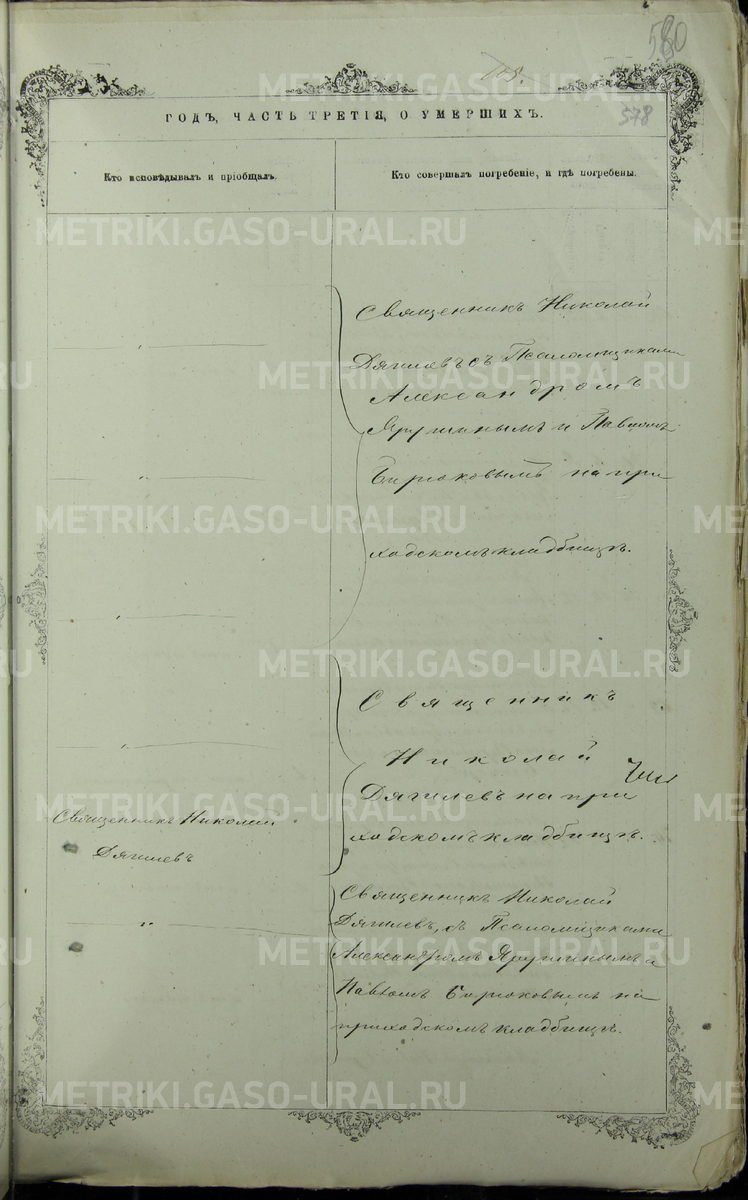 580
103.
578
ГОДЪ, ЧАСТЬ ТРЕТІЯ, О УМЕРШИХЪ.
Кто исповѣдывалъ и пріобщалъ.
Кто совершалъ погребеніе, и гдѣ погребены.
Священникъ Николай
Дягилевъ съ Псаломщиками
Александромъ
Яру и Павломъ
Бирюковымъ на при
ходскомъ кладбищѣ.
Священникъ
Николай
Дягилевъ на при
ходскомъ кладбищѣ.
Священникъ Николай
Дягилевъ
Священникъ Николай
Дягилевъ, съ Псаломщиками
Александромъ и
Павломъ Бирюковымъ на
приходскомъ кладбищѣ.
METRIKI.GASO-URAL.RU